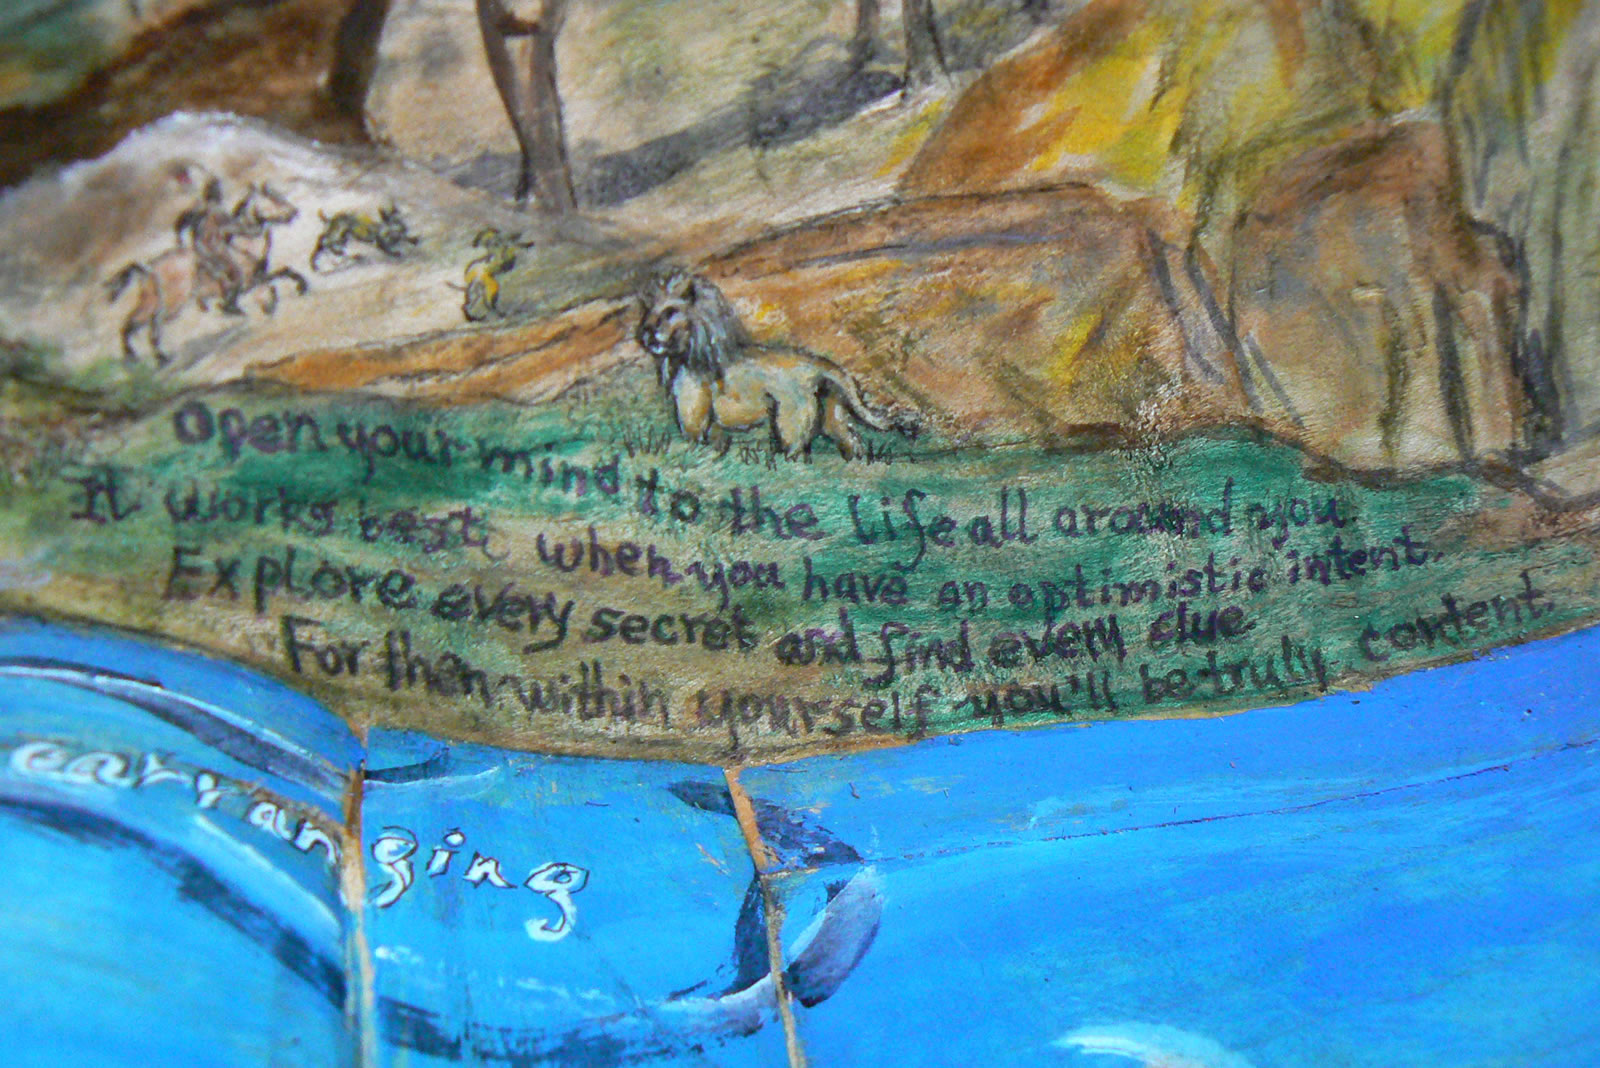 Open your mind to the life all around you.
It works best when you have an optimistic intent.
Explore every secret and find every clue
For then within yourself you'll be truly content.
earranging